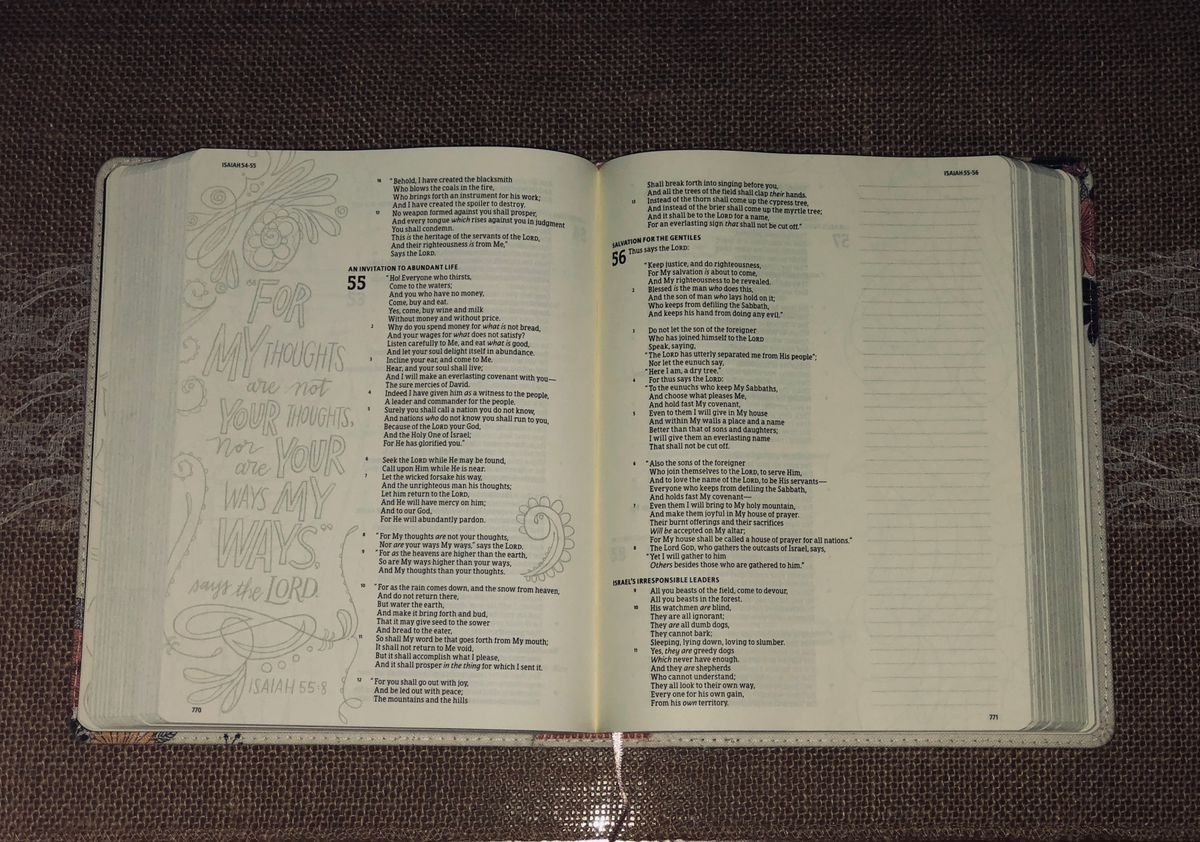 ISAIAH 54-55
"FOR
MY THOUGHTS
are not
YOUR THOUGHTS,
Nor
are YOUR
WAYS MY
WAYS,"
says the LORD.
ISAIAH 55:8
770
16 "Behold, I have created the blacksmith
Who blows the coals in the fire,
Who brings forth an instrument for his work;
And I have created the spoiler to destroy.
17 No weapon formed against you shall prosper,
And every tongue which rises against you in judgment
You shall condemn.
This is the heritage of the servants of the LORD,
And their righteousness is from Me,"
Says the LORD.
AN INVITATION TO ABUNDANT LIFE
55 "Ho! Everyone who thirsts,
Come to the waters;
And you who have no money,
Come, buy and eat.
Yes, come, buy wine and milk
Without money and without price.
2 Why do you spend money for what is not bread,
And your wages for what does not satisfy?
Listen carefully to Me, and eat what is good,
And let your soul delight itself in abundance.
3 Incline your ear, and come to Me.
Hear, and your soul shall live;
And I will make an everlasting covenant with you—
The sure mercies of David.
4 Indeed I have given him as a witness to the people,
A leader and commander for the people.
5 Surely you shall call a nation you do not know,
And nations who do not know you shall run to you,
Because of the LORD your God,
And the Holy One of Israel;
For He has glorified you."
6 Seek the LORD while He may be found,
Call upon Him while He is near.
7 Let the wicked forsake his way,
And the unrighteous man his thoughts;
Let him return to the LORD,
And He will have mercy on him;
And to our God,
For He will abundantly pardon.
8 "For My thoughts are not your thoughts,
Nor are your ways My ways," says the LORD.
9 "For as the heavens are higher than the earth,
So are My ways higher than your ways,
And My thoughts than your thoughts.
10 "For as the rain comes down, and the snow from heaven,
And do not return there,
But water the earth,
And make it bring forth and bud,
That it may give seed to the sower
And bread to the eater,
11 So shall My word be that goes forth from My mouth;
It shall not return to Me void,
But it shall accomplish what I please,
And it shall prosper in the thing for which I sent it.
12 "For you shall go out with joy,
And be led out with peace;
The mountains and the hills
ISAIAH 55-56
Shall break forth into singing before you,
And all the trees of the field shall clap their hands.
13 Instead of the thorn shall come up the cypress tree,
And instead of the brier shall come up the myrtle tree;
And it shall be to the LORD for a name,
For an everlasting sign that shall not be cut off."
SALVATION FOR THE GENTILES
56 Thus says the LORD:
"Keep justice, and do righteousness,
For My salvation is about to come,
And My righteousness to be revealed.
2 Blessed is the man who does this,
And the son of man who lays hold on it;
Who keeps from defiling the Sabbath,
And keeps his hand from doing any evil."
3 Do not let the son of the foreigner
Who has joined himself to the LORD
Speak, saying,
"The LORD has utterly separated me from His people";
Nor let the eunuch say,
"Here I am, a dry tree."
4 For thus says the LORD:
"To the eunuchs who keep My Sabbaths,
And choose what pleases Me,
And hold fast My covenant,
5 Even to them I will give in My house
And within My walls a place and a name
Better than that of sons and daughters;
I will give them an everlasting name
That shall not be cut off.
6 "Also the sons of the foreigner
Who join themselves to the LORD, to serve Him,
And to love the name of the LORD, to be His servants—
Everyone who keeps from defiling the Sabbath,
And holds fast My covenant—
7 Even them I will bring to My holy mountain,
And make them joyful in My house of prayer.
Their burnt offerings and their sacrifices
Will be accepted on My altar;
For My house shall be called a house of prayer for all nations."
8 The Lord GOD, who gathers the outcasts of Israel, says,
"Yet I will gather to him
Others besides those who are gathered to him."
ISRAEL'S IRRESPONSIBLE LEADERS
9 All you beasts of the field, come to devour,
All you beasts in the forest.
10 His watchmen are blind,
They are all ignorant;
They are all dumb dogs,
They cannot bark;
Sleeping, lying down, loving to slumber.
11 Yes, they are greedy dogs
Which never have enough.
And they are shepherds
Who cannot understand;
They all look to their own way,
Every one for his own gain,
From his own territory.
771